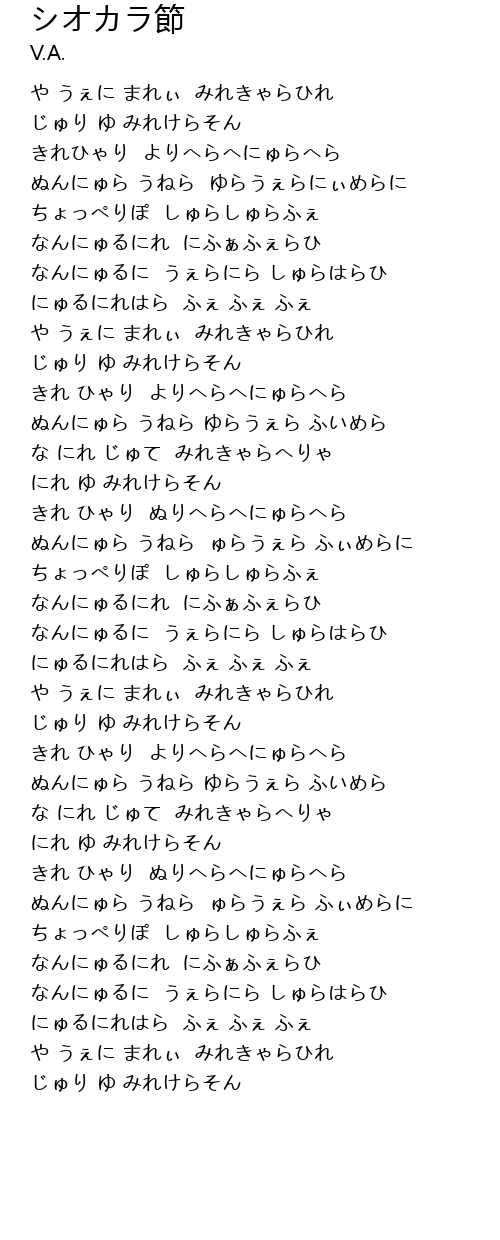 シオカラ節
V.A.
や うぇに まれぃ みれきゃらひれ
じゅり ゆ みれけらそん
きれひゃり よりへらへにゅらへら
ぬんにゅら うねら ゆらうぇらにぃめらに
ちょっぺりぽ しゅらしゅらふぇ
なんにゅるにれ にふぁふぇらひ
なんにゅるに うぇらにら しゅらはらひ
にゅるにれはら ふぇ ふぇ ふぇ
や うぇに まれぃ みれきゃらひれ
じゅり ゆ みれけらそん
きれ ひゃり よりへらへにゅらへら
ぬんにゅら うねら ゆらうぇら ふいめら
な にれ じゅて みれきゃらへりゃ
にれ ゆ みれけらそん
きれ ひゃり ぬりへらへにゅらへら
ぬんにゅら うねら ゅらうぇら ふぃめらに
ちょっぺりぽ しゅらしゅらふぇ
なんにゅるにれ にふぁふぇらひ
なんにゅるに うぇらにら しゅらはらひ
にゅるにれはら ふぇ ふぇ ふぇ
や うぇに まれぃ みれきゃらひれ
じゅり ゆ みれけらそん
きれ ひゃり よりへらへにゅらへら
ぬんにゅら うねら ゆらうぇら ふいめら
な にれ じゅて みれきゃらへりゃ
にれ ゆ みれけらそん
きれ ひゃり ぬりへらへにゅらへら
ぬんにゅら うねら ゅらうぇら ふぃめらに
ちょっぺりぽ しゅらしゅらふぇ
なんにゅるにれ にふぁふぇらひ
なんにゅるに うぇらにら しゅらはらひ
にゅるにれはら ふぇ ふぇ ふぇ
や うぇに まれぃ みれきゃらひれ
じゅり ゆ みれけらそん